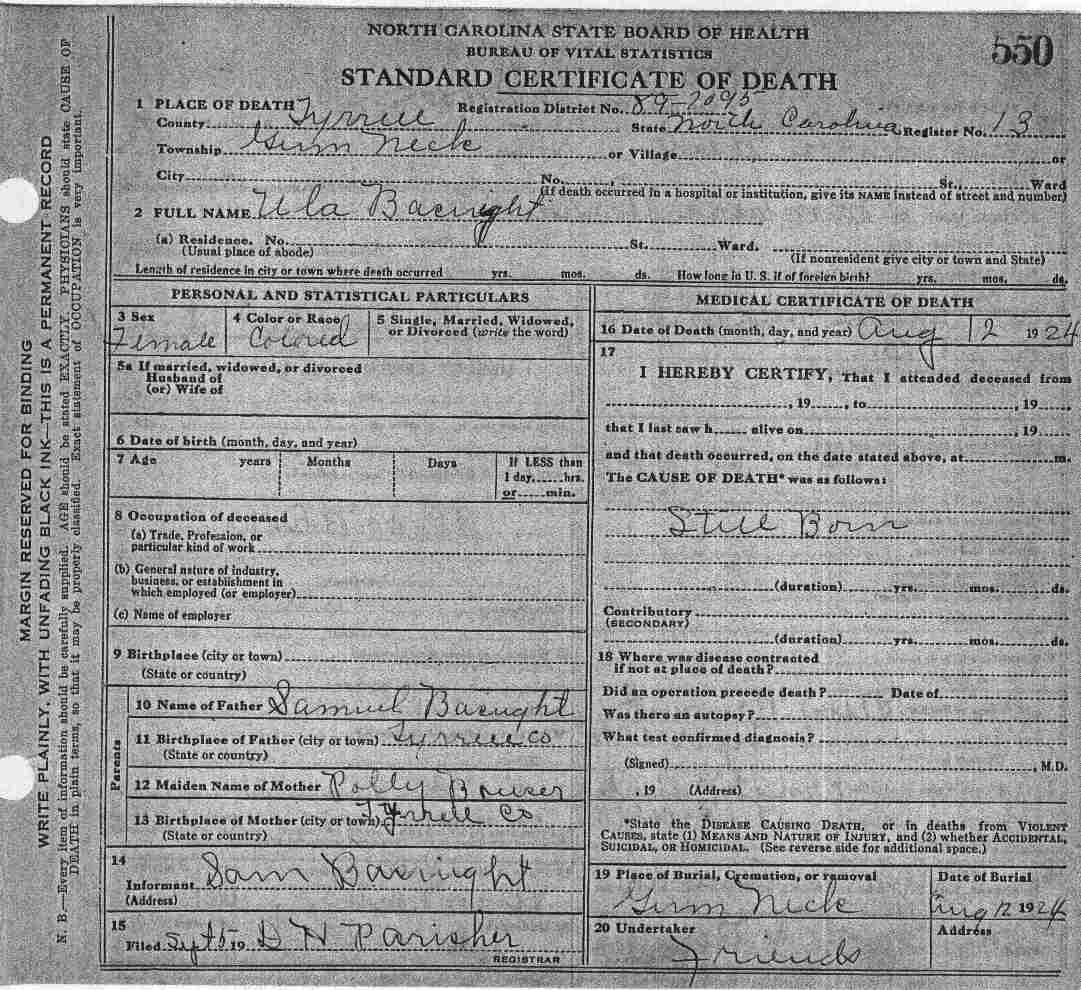 NORTH CAROLINA STATE BOARD OF HEALTH
BUREAU OF VITAL STATISTICS
550
STANDARD CERTIFICATE OF DEATH
1 PLACE OF DEATH
Registration District No. 89-2095
County Tyrrell State North Carolina Register No. 13
Township Gum Neck or Village or
City No. St., Ward
(If death occurred in a hospital or institution, give its NAME instead of street and number)
2 FULL NAME Ula Basnight
(a) Residence. No. St., Ward.
(Usual place of abode) (If nonresident give city or town and State)
Length of residence in city or town where death occurred yrs. mos. ds. How long in U. S. if of foreign birth? yrs. mos. ds.
PERSONAL AND STATISTICAL PARTICULARS
3 Sex Female
4 Color or Race Colored
5 Single, Married, Widowed,
or Divorced (write the word)
5a If married, widowed, or divorced
Husband of
(or) Wife of
6 Date of birth (month, day, and year)
7 Age years Months Days If LESS than
1 day, hrs.
or min.
8 Occupation of deceased
(a) Trade, Profession, or
particular kind of work
(b) General nature of industry,
business, or establishment in
which employed (or employer)
(c) Name of employer
9 Birthplace (city or town)
(State or country)
Parents
10 Name of Father Samuel Basnight
11 Birthplace of Father (city or town) Tyrrell Co
(State or country)
12 Maiden Name of Mother Polly Bouser
13 Birthplace of Mother (city or town) Tyrrell Co
(State or country)
14
Informant Sam Basnight
(Address)
15
Filed Sept 5 19 D N Parisher
REGISTRAR
MEDICAL CERTIFICATE OF DEATH
16 Date of Death (month, day, and year) Aug 12 1924
17
I HEREBY CERTIFY, That I attended deceased from
, 19 , to , 19 ,
that I last saw h alive on , 19
and that death occurred, on the date stated above, at m.
The CAUSE OF DEATH* was as follows:
Still Born
(duration) yrs. mos. ds.
Contributory
(SECONDARY)
(duration) yrs. mos. ds.
18 Where was disease contracted
if not at place of death?
Did an operation precede death? Date of
Was there an autopsy?
What test confirmed diagnosis?
(Signed) , M.D.
, 19 (Address)
*State the DISEASE CAUSING DEATH, or in deaths from VIOLENT
CAUSES, state (1) MEANS AND NATURE OF INJURY, and (2) whether ACCIDENTAL,
SUICIDAL, OR HOMICIDAL. (See reverse side for additional space.)
19 Place of Burial, Cremation, or removal
Gum Neck
Date of Burial
Aug 12 1924
20 Undertaker
Friends
Address
MARGIN RESERVED FOR BINDING
WRITE PLAINLY, WITH UNFADING BLACK INK—THIS IS A PERMANENT RECORD
N. B.—Every item of information should be carefully supplied. AGE should be stated EXACTLY. PHYSICIANS should state CAUSE OF
DEATH in plain terms, so that it may be properly classified. Exact statement of OCCUPATION is very important.